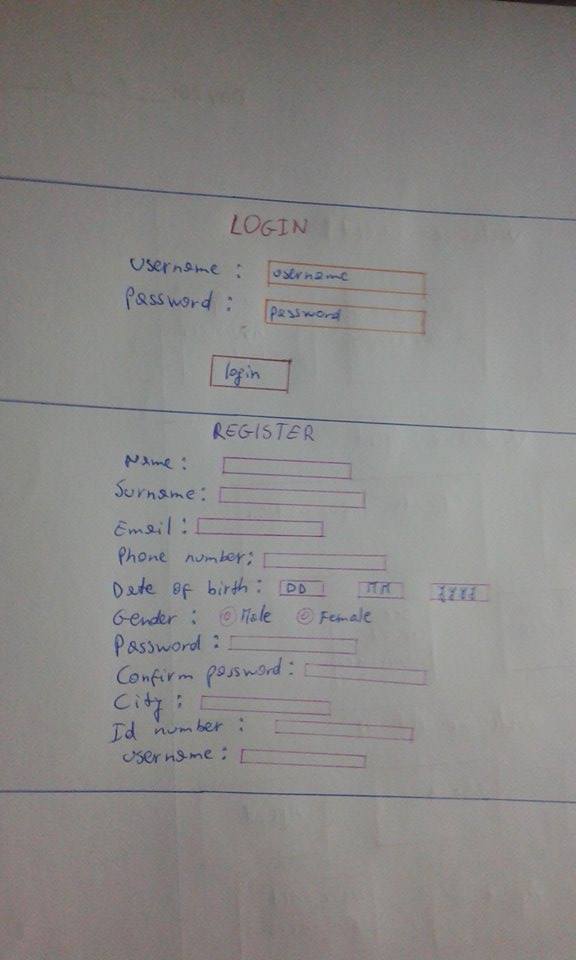 LOGIN
username : username
password : password
login
REGISTER
Name :
Surname :
Email :
Phone number :
Date of birth : DD MM YYYY
Gender : Male Female
Password :
Confirm password :
City :
Id number :
username :